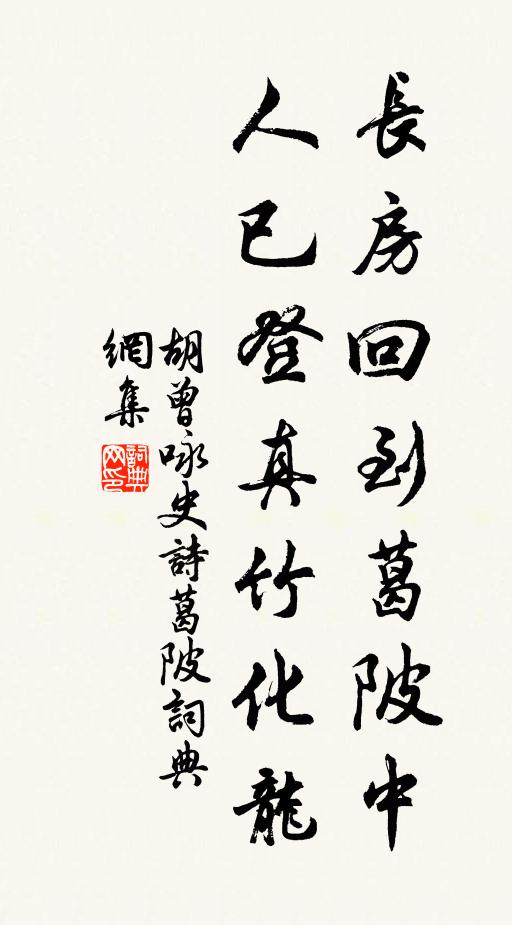 長房回到葛陂中
人已登真竹化龍
胡曾咏史詩葛陂詞典
網集
詞典
网印